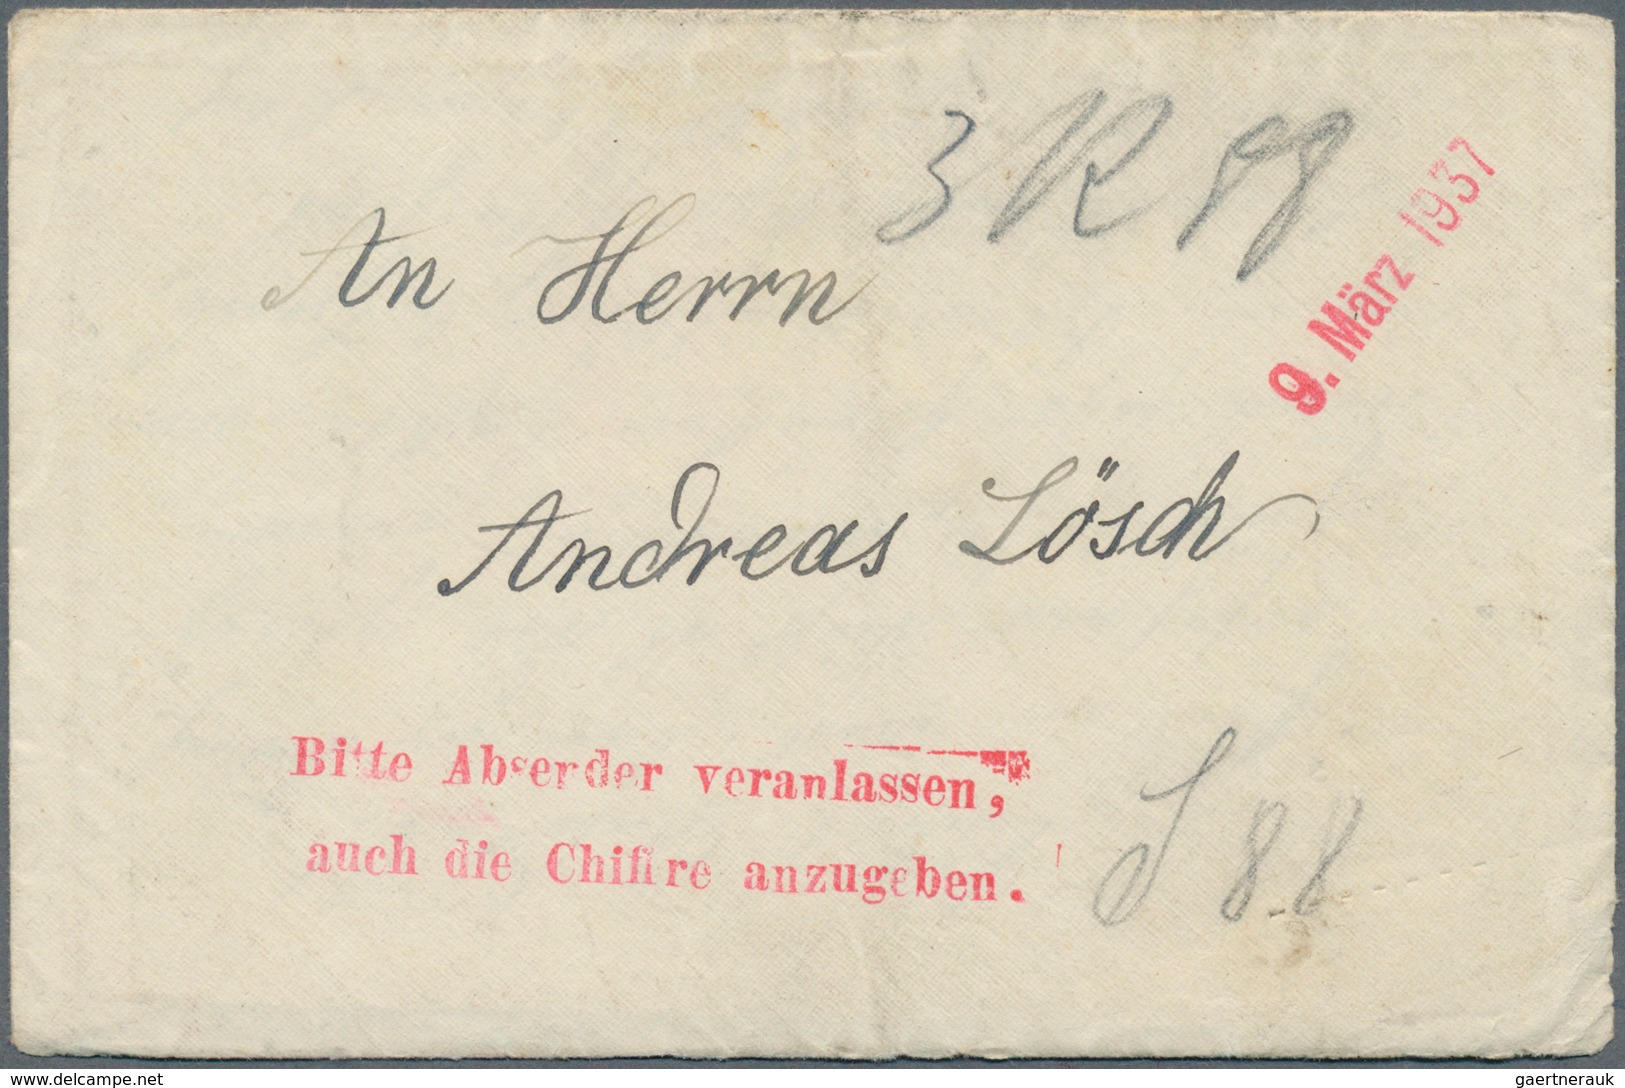 3 R 88
9. März 1937
An Herrn
Andreas Lösch
Bitte Absender veranlassen,
auch die Chiffre anzugeben.
S 88
© www.delcampe.net
gaertnerauk